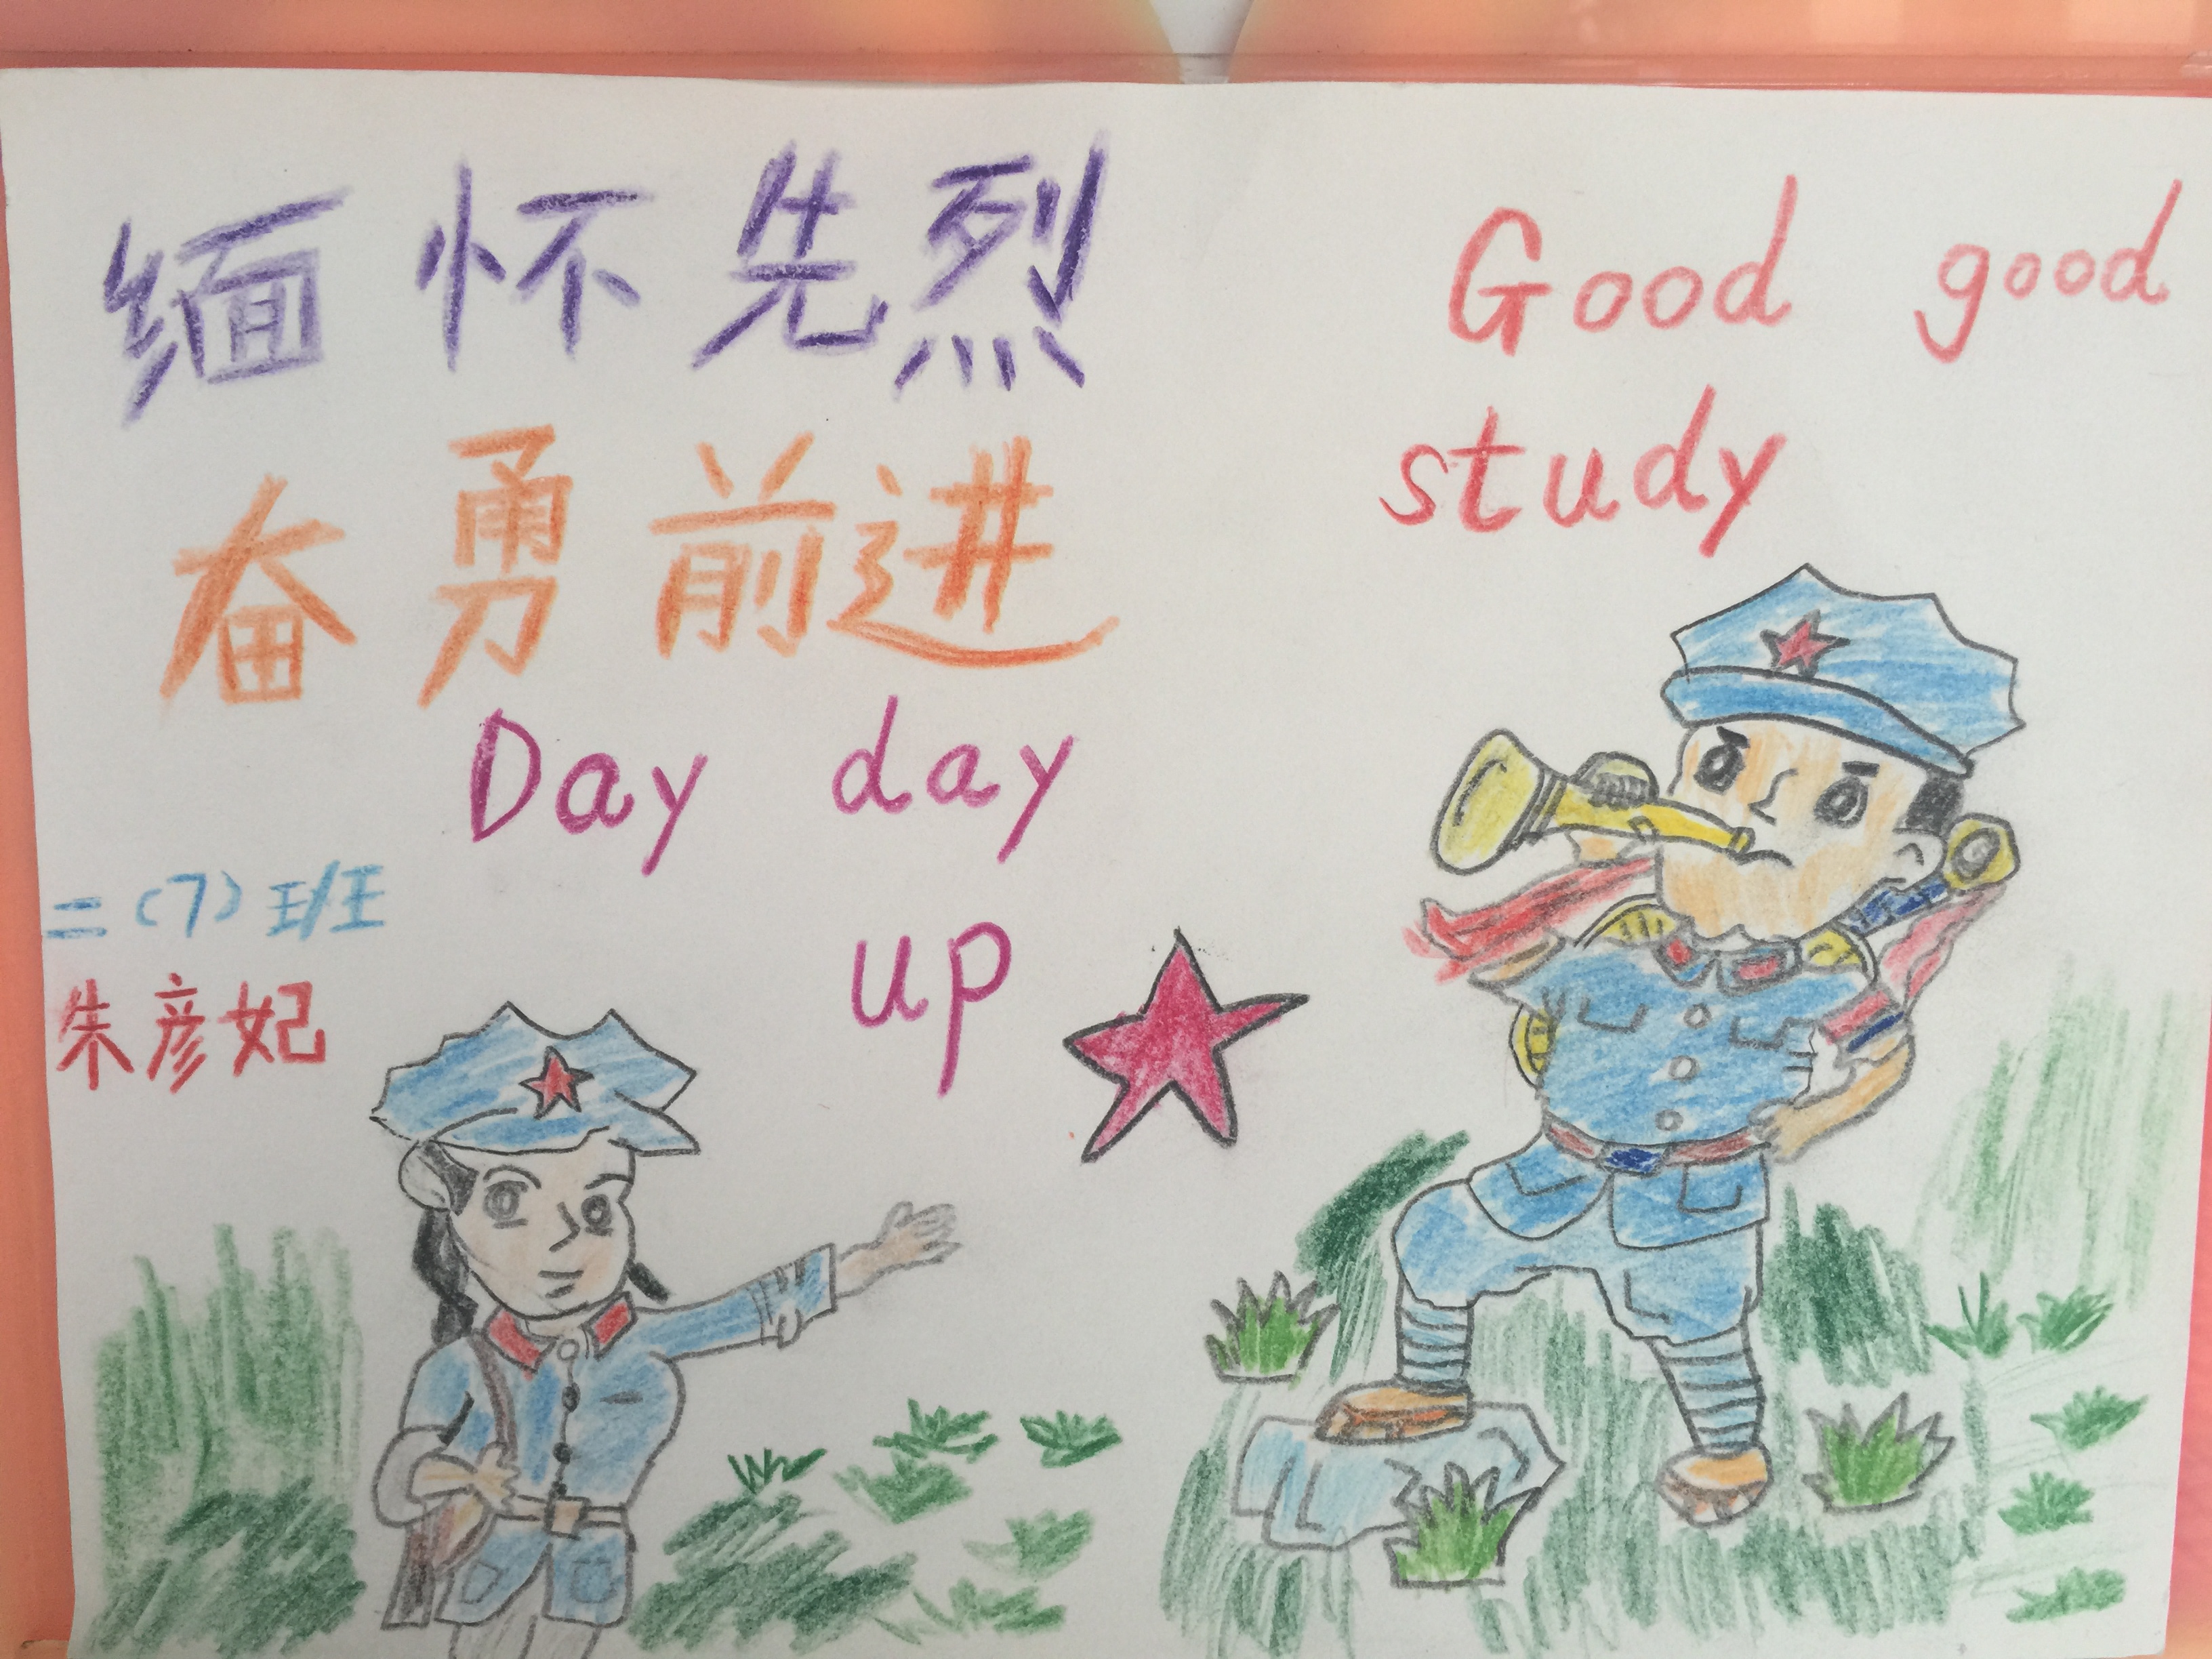 缅怀先烈
奋勇前进
Good good
study
Day day
up
二(7)班
朱彦妃